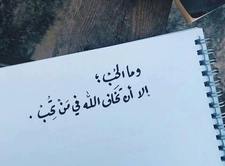 وما الحُبْ ؛
إلا أن تخافَ اللّٰه في مَنْ تحِبْ .